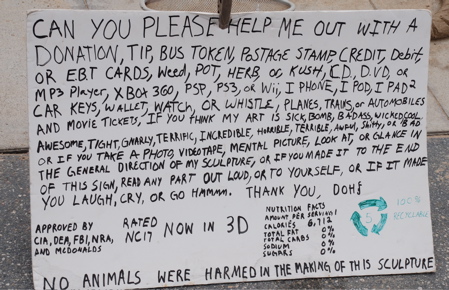 CAN YOU PLEASE HELP ME OUT WITH A
DONATION, TIP, BUS TOKEN, POSTAGE STAMP, CREDIT, Debit,
OR E.B.T CARDS, Weed, POT, HERB, OG KUSH, CD, D.V.D, OR
MP3 Player, XBOX 360, PSP, PS3, or Wii, I PHONE, I POD, I PAD2
CAR KEYS, WALLET, WATCH, OR WHISTLE, PLANES, TRAINS, or AUTOMOBILES
AND MOVIE TICKETS, IF YOU THINK MY ART IS SICK, BOMB, BADASS, WICKED COOL
AWESOME, TIGHT, GNARLY, TERRIFIC, INCREDIBLE, HORRIBLE, TERRIBLE, AWFUL, Shitty, or BAD
OR IF YOU TAKE A PHOTO, VIDEOTAPE, MENTAL PICTURE, LOOK AT, OR GLANCE IN
THE GENERAL DIRECTION OF MY SCULPTURE, OR IF YOU MADE IT TO THE END
OF THIS SIGN, READ ANY PART OUT LOUD, OR TO YOURSELF, OR IF IT MADE
YOU LAUGH, CRY, OR GO HMMMM. THANK YOU, DOH!
APPROVED BY
CIA, DEA, FBI, NRA,
AND MCDONALDS
RATED
NC17
NOW IN 3D
NUTRITION FACTS
AMOUNT PER SERVING 1
CALORIES 6,712
TOTAL FAT 0%
TOTAL CARBS 0%
SODIUM 0%
SUGARS 0%
5
100%
RECYCLABLE
NO ANIMALS WERE HARMED IN THE MAKING OF THIS SCULPTURE